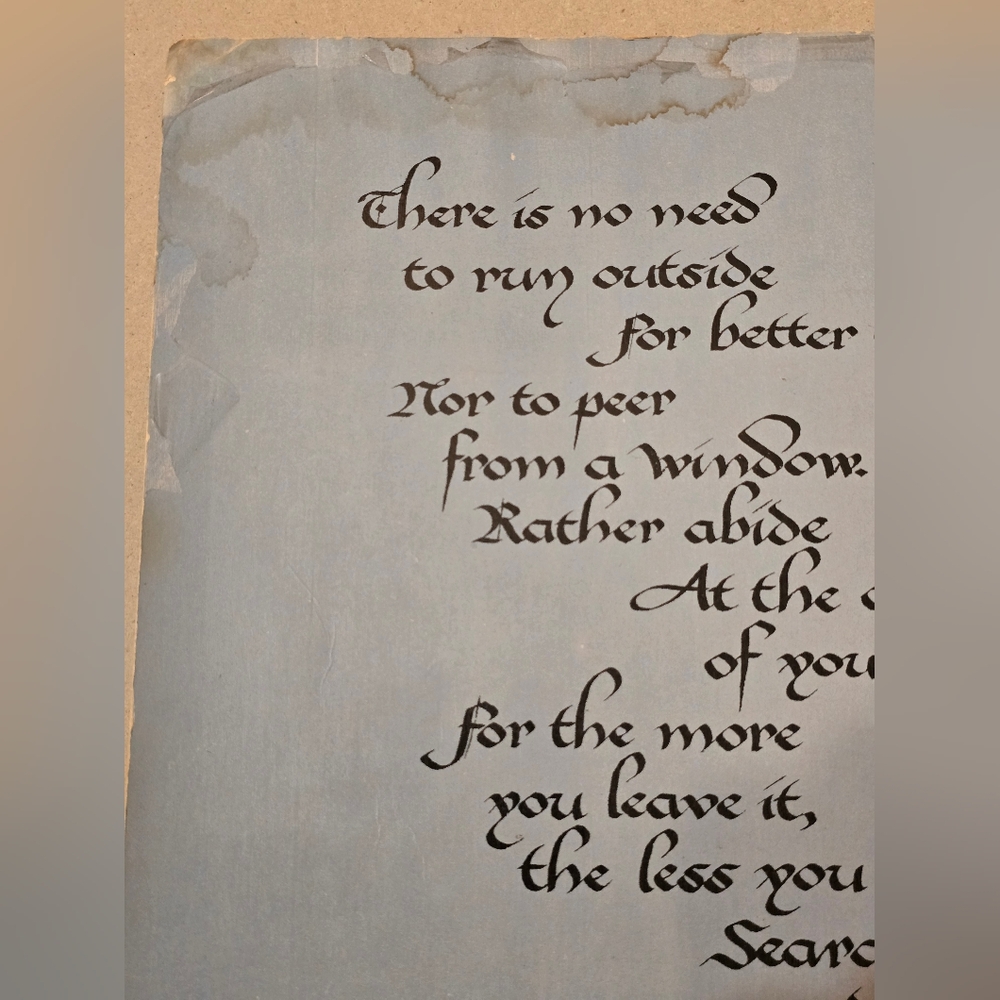 There is no need
to run outside
For better
Nor to peer
from a window.
Rather abide
At the
of you
For the more
you leave it,
the less you
Searc